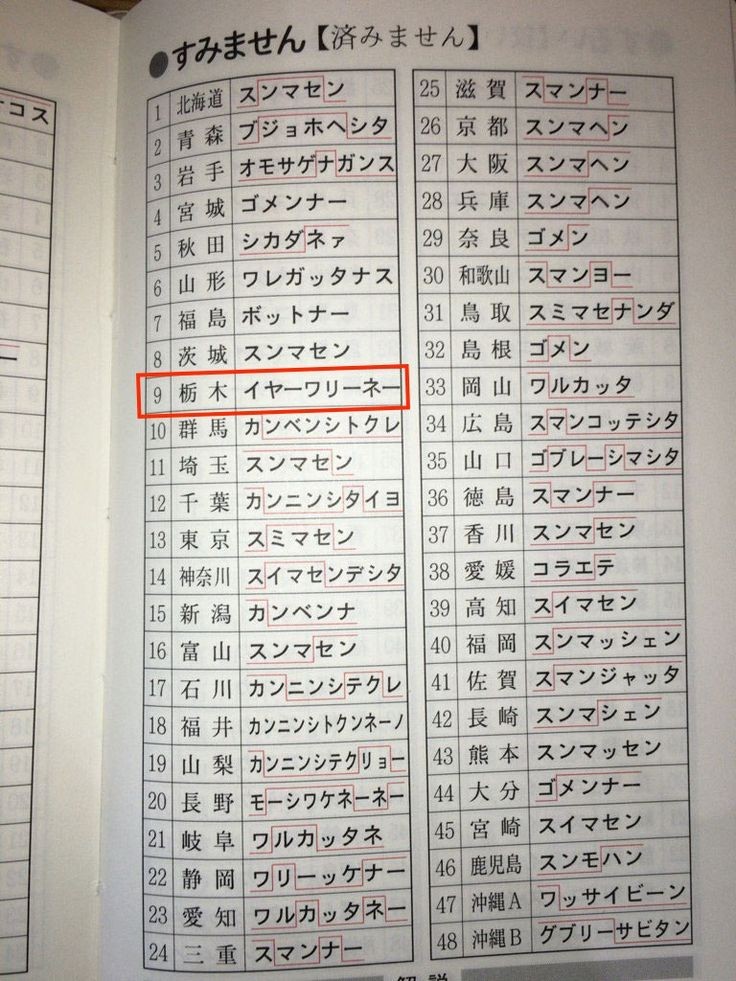 コス
●すみません【済みません】
1 北海道 スンマセン
2 青森 ブジョホヘシタ
3 岩手 オモサゲナガンス
4 宮城 ゴメンナー
5 秋田 シカダネァ
6 山形 ワレガッタナス
7 福島 ボットナー
8 茨城 スンマセン
9 栃木 イヤーワリーネー
10 群馬 カンベンシトクレ
11 埼玉 スンマセン
12 千葉 カンニンシタイヨ
13 東京 スミマセン
14 神奈川 スイマセンデシタ
15 新潟 カンベンナ
16 富山 スンマセン
17 石川 カンニンシテクレ
18 福井 カンニンシトクンネーノ
19 山梨 カンニンシテクリョー
20 長野 モーシワケネーネー
21 岐阜 ワルカッタネ
22 静岡 ワリーッケナー
23 愛知 ワルカッタネー
24 三重 スマンナー
25 滋賀 スマンナー
26 京都 スンマヘン
27 大阪 スンマヘン
28 兵庫 スンマヘン
29 奈良 ゴメン
30 和歌山 スマンヨー
31 鳥取 スミマセナンダ
32 島根 ゴメン
33 岡山 ワルカッタ
34 広島 スマンコッテシタ
35 山口 ゴブレーシマシタ
36 徳島 スマンナー
37 香川 スンマセン
38 愛媛 コラエテ
39 高知 スイマセン
40 福岡 スンマッシェン
41 佐賀 スマンジャッタ
42 長崎 スンマシェン
43 熊本 スンマッセン
44 大分 ゴメンナー
45 宮崎 スイマセン
46 鹿児島 スンモハン
47 沖縄A ワッサイビーン
48 沖縄B グブリーサビタン
解説